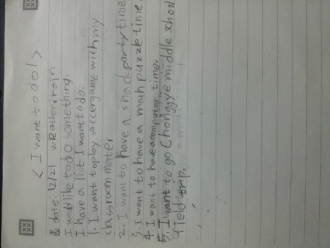 <I want to do!>
date: 12/21 weather: rain
I would like to do something.
I have a list I want to do.
1. I want to play soccer game with my
classroom mate.
2. I want to have a snack party time.
3. I want to have a math puzzle time.
4. I want to have time.
5. I want to go Chonggye middle shool
field trip.